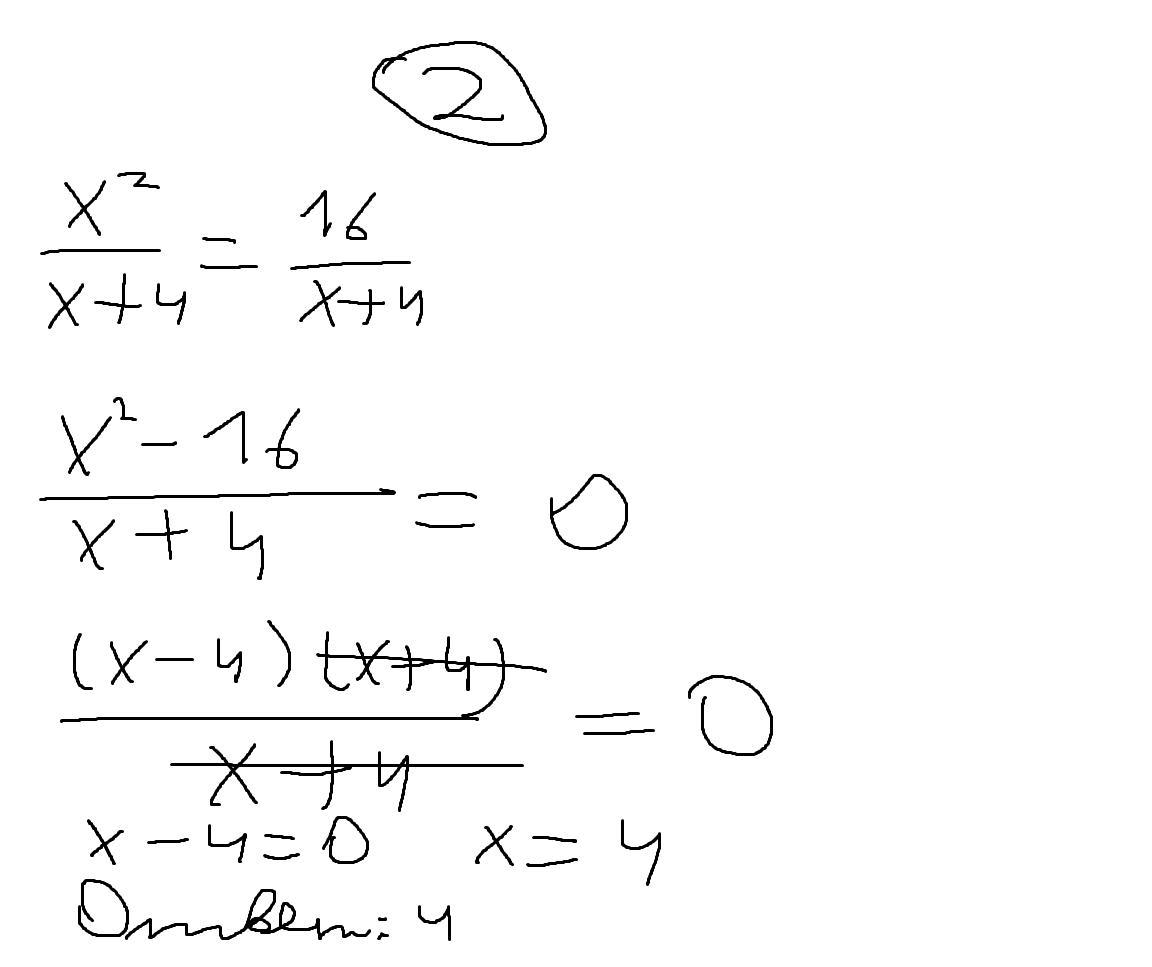 2
x²/(x+4) = 16/(x+4)
(x² - 16)/(x + 4) = 0
(x - 4)(x+4)/(x+4) = 0
x - 4 = 0 x = 4
Ответ: 4